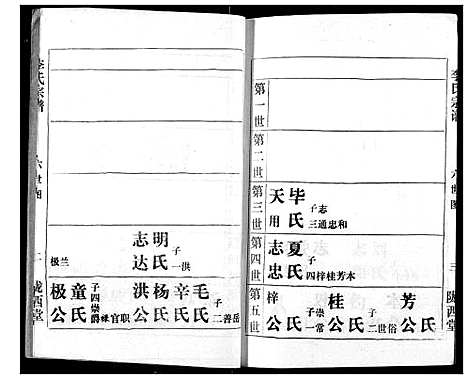 李氏宗谱
六世图
三
陇西堂
第一世
第二世
第三世
天用
毕氏
子志
三通忠和
第四世
志忠
夏氏
子
四梓桂芳本
第五世
芳公
氏
桂公
氏
子世
二俗
梓公
氏
子崇
一常
李氏宗谱
六世图
二
陇西堂
明氏
子
一洪
志达
极兰
毛氏
子
二善岳
辛氏
杨氏
洪公
童氏
子四崇爵禄官职
极公